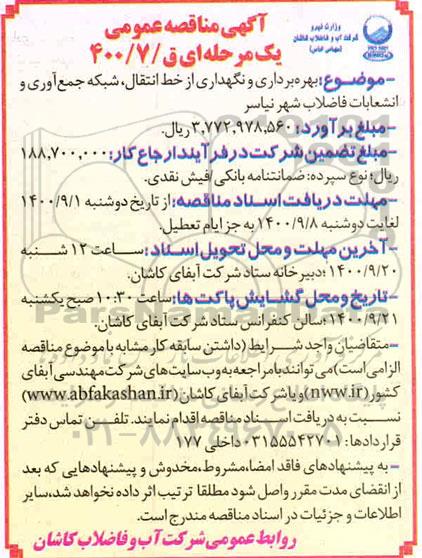 آگهی مناقصه عمومی
یک مرحله‌ای ق/۴۰۰/۷
وزارت نیرو
شرکت آب و فاضلاب کاشان
(سهامی خاص)
-موضوع: بهره‌برداری و نگهداری از خط انتقال، شبکه جمع‌آوری و
انشعابات فاضلاب شهر نیاسر
-مبلغ برآورد: ۳,۷۷۲,۹۷۸,۵۶۰ ریال.
-مبلغ تضمین شرکت در فرآیند ارجاع کار: ۱۸۸,۷۰۰,۰۰۰
ریال؛ نوع سپرده: ضمانتنامه بانکی/فیش نقدی.
-مهلت دریافت اسناد مناقصه: از تاریخ دوشنبه ۱۴۰۰/۹/۱
لغایت دوشنبه ۱۴۰۰/۹/۸ به جز ایام تعطیل.
-آخرین مهلت و محل تحویل اسناد: ساعت ۱۲ شنبه
۱۴۰۰/۹/۲۰؛ دبیرخانه ستاد شرکت آبفای کاشان.
-تاریخ و محل گشایش پاکت‌ها: ساعت ۱۰:۳۰ صبح یکشنبه
۱۴۰۰/۹/۲۱؛ سالن کنفرانس ستاد شرکت آبفای کاشان.
-متقاضیان واجد شرایط (داشتن سابقه کار مشابه با موضوع مناقصه
الزامی است) می‌توانند با مراجعه به وب‌سایت‌های شرکت مهندسی آبفای
کشور (nww.ir) و یا شرکت آبفای کاشان (www.abfakashan.ir)
نسبت به دریافت اسناد مناقصه اقدام نمایند. تلفن تماس دفتر
قراردادها: ۰۳۱۵۵۵۴۲۷۰۱ داخلی ۱۷۷
-به پیشنهادهای فاقد امضا، مشروط، مخدوش و پیشنهادهایی که بعد
از انقضای مدت مقرر واصل شود مطلقا ترتیب اثر داده نخواهد شد، سایر
اطلاعات و جزئیات در اسناد مناقصه مندرج است.
روابط عمومی شرکت آب و فاضلاب کاشان